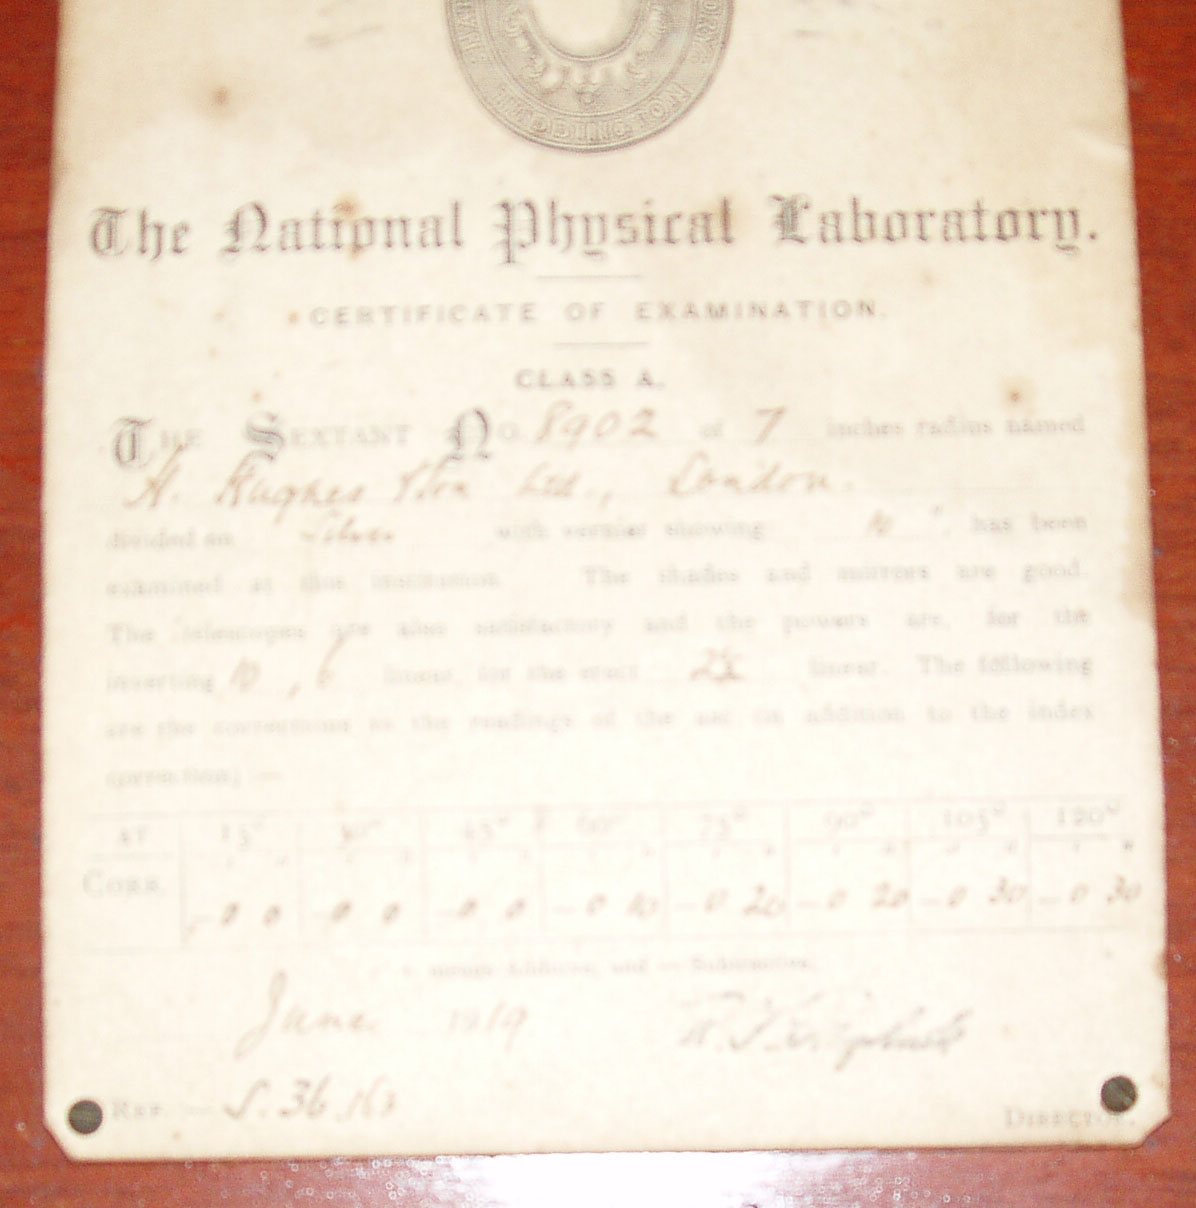 TEDDINGTON
The National Physical Laboratory.
CERTIFICATE OF EXAMINATION.
CLASS A.
THE SEXTANT NO. 8902 of 7 inches radius named
H. Hughes & Son Ltd., London.
divided on Silver with vernier showing 10 ", has been
examined at this institution. The shades and mirrors are good.
The telescopes are also satisfactory and the powers are, for the
inverting 10, 6 linear, for the erect linear. The following
are the corrections to the readings of the arc in addition to the index
correction; —
AT 15° 30° 45° 60° 75° 90° 105° 120°
' " ' " ' " ' " ' " ' " ' " ' "
CORR. -0 0 -0 0 -0 0 -0 10 -0 20 -0 20 -0 30 -0 30
+ means Additive, and — Subtractive.
June 1919
REF. :— S. 36
DIRECTOR.